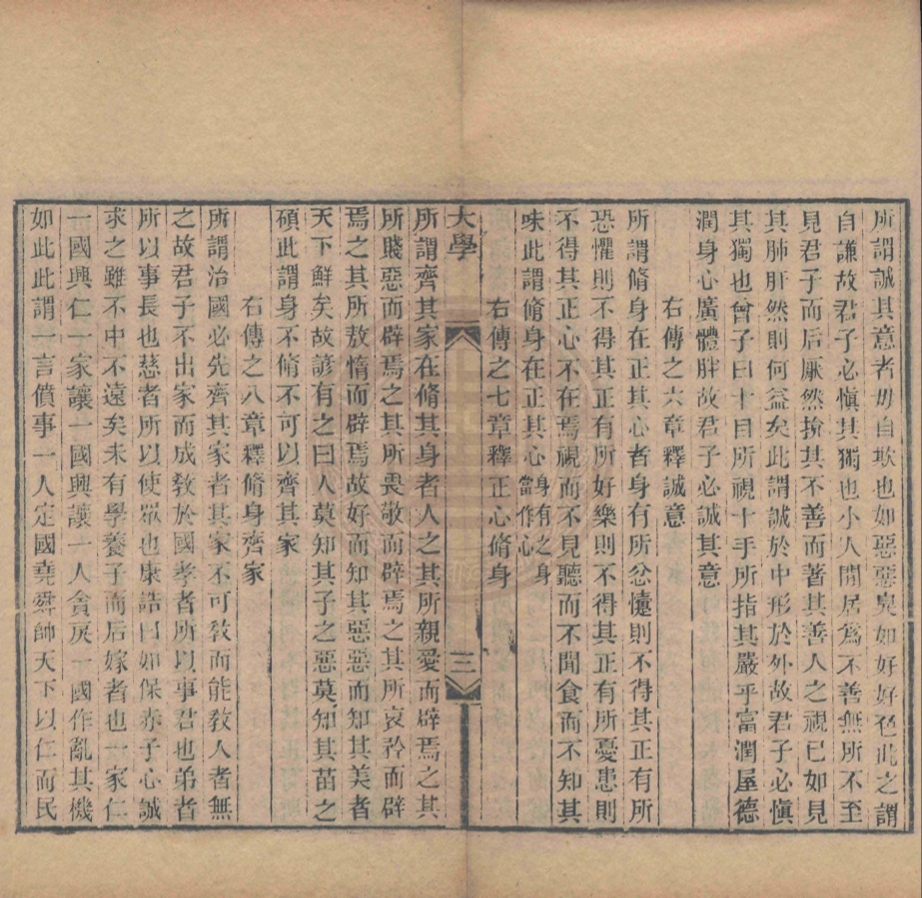 所謂誠其意者毋自欺也如惡惡臭如好好色此之謂
自謙故君子必慎其獨也小人閒居爲不善無所不至
見君子而后厭然揜其不善而著其善人之視己如見
其肺肝然則何益矣此謂誠於中形於外故君子必慎
其獨也曾子曰十目所視十手所指其嚴乎富潤屋德
潤身心廣體胖故君子必誠其意
右傳之六章釋誠意
所謂脩身在正其心者身有所忿懥則不得其正有所
恐懼則不得其正有所好樂則不得其正有所憂患則
不得其正心不在焉視而不見聽而不聞食而不知其
味此謂脩身在正其心身有之身當作心
右傳之七章釋正心脩身
大學 三
所謂齊其家在脩其身者人之其所親愛而辟焉之其
所賤惡而辟焉之其所畏敬而辟焉之其所哀矜而辟
焉之其所敖惰而辟焉故好而知其惡惡而知其美者
天下鮮矣故諺有之曰人莫知其子之惡莫知其苗之
碩此謂身不脩不可以齊其家
右傳之八章釋脩身齊家
所謂治國必先齊其家者其家不可敎而能敎人者無
之故君子不出家而成敎於國孝者所以事君也弟者
所以事長也慈者所以使眾也康誥曰如保赤子心誠
求之雖不中不遠矣未有學養子而后嫁者也一家仁
一國興仁一家讓一國興讓一人貪戾一國作亂其機
如此此謂一言僨事一人定國堯舜帥天下以仁而民